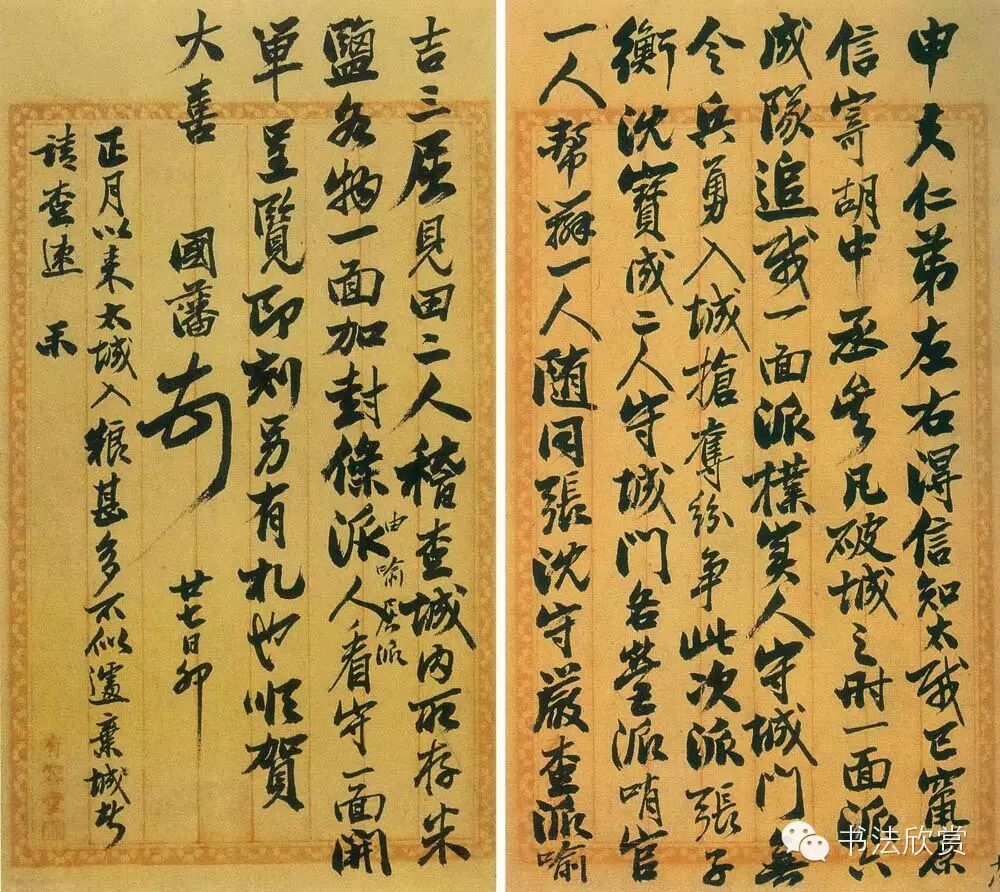 申夫仁弟左右得信知太賊已竄原
信寄胡中丞矣凡破城之時一面派六
成隊追賊一面派樸實人守城門無
令兵勇入城搶奪紛爭此次派張子
衡沈寶成二人守城門各營派哨官
一人幫辦一人隨同張沈守嚴查派喻
吉三屈見田二人稽查城內所存米
由喻屈派
鹽各物一面加封條派人看守一面開
單呈覽即刻另有札也順賀
大喜
國藩
廿七日卯
正月以來太城入糧甚多不似遽棄城者
請查速 示
书法欣赏